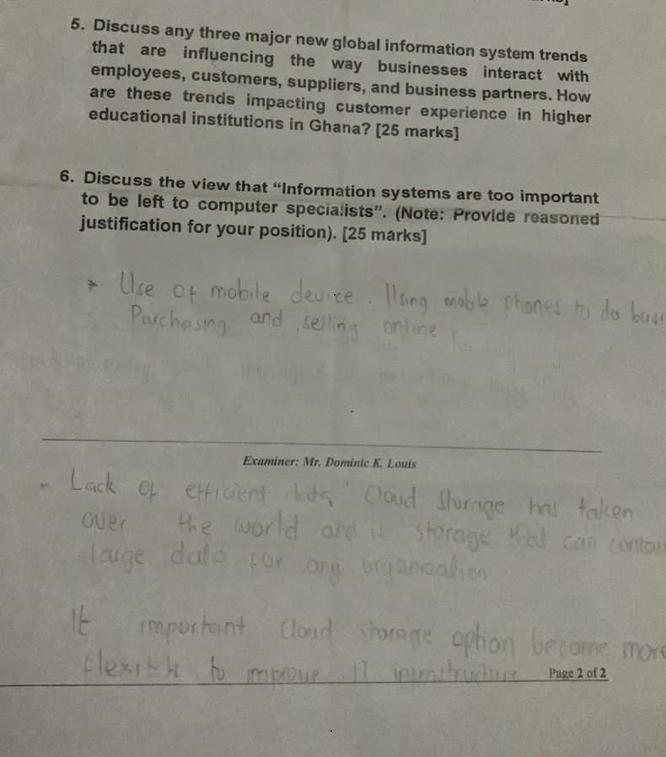 5. Discuss any three major new global information system trends
that are influencing the way businesses interact with
employees, customers, suppliers, and business partners. How
are these trends impacting customer experience in higher
educational institutions in Ghana? [25 marks]
6. Discuss the view that “Information systems are too important
to be left to computer specialists”. (Note: Provide reasoned
justification for your position). [25 marks]
* Use of mobile device. Using mobile phones to do
Purchasing and selling online
Examiner: Mr. Dominic K. Louis
Lack of efficient data Cloud Storage has taken
over the world and is storage that can
large data for any organisation
It important Cloud storage option become more
flexible to improve IT
Page 2 of 2